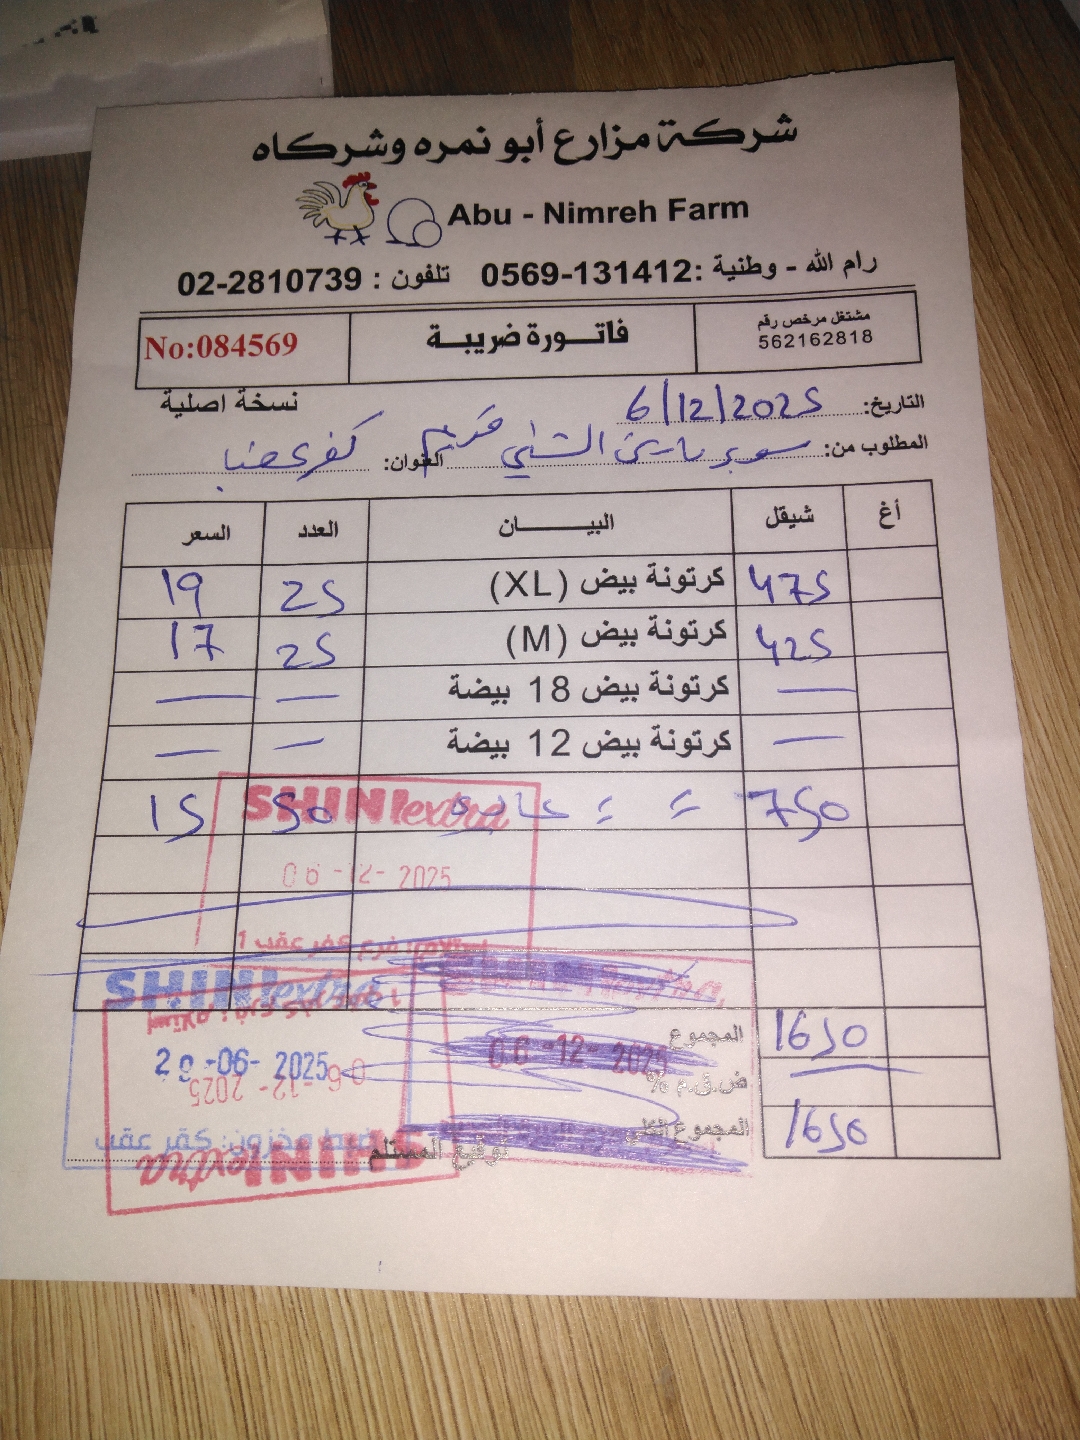 شركة مزارع أبو نمره وشركاه
Abu - Nimreh Farm
رام الله - وطنية :0569-131412 تلفون : 02-2810739
مشتغل مرخص رقم
562162818
فاتورة ضريبة
No:084569
نسخة اصلية
التاريخ: 6/12/2025
المطلوب من: سوبر ماركت الشني العنوان: كفر عقب
أغ شيقل البيان العدد السعر
475 كرتونة بيض (XL) 25 19
425 كرتونة بيض (M) 25 17
— كرتونة بيض 18 بيضة — —
— كرتونة بيض 12 بيضة — —
750 = = 50 15
SHINI extra
06-12-2025
استلام: فرع كفر عقب 1
SHINI extra
20-06-2025
ضبط مخزون: كفر عقب
SHINI extra
06-12-2025
استلام: فرع كفر عقب 1
06-12-2025
المجموع 1650
ض.ق.م %
المجموع الكلي 1650
توقيع المستلم